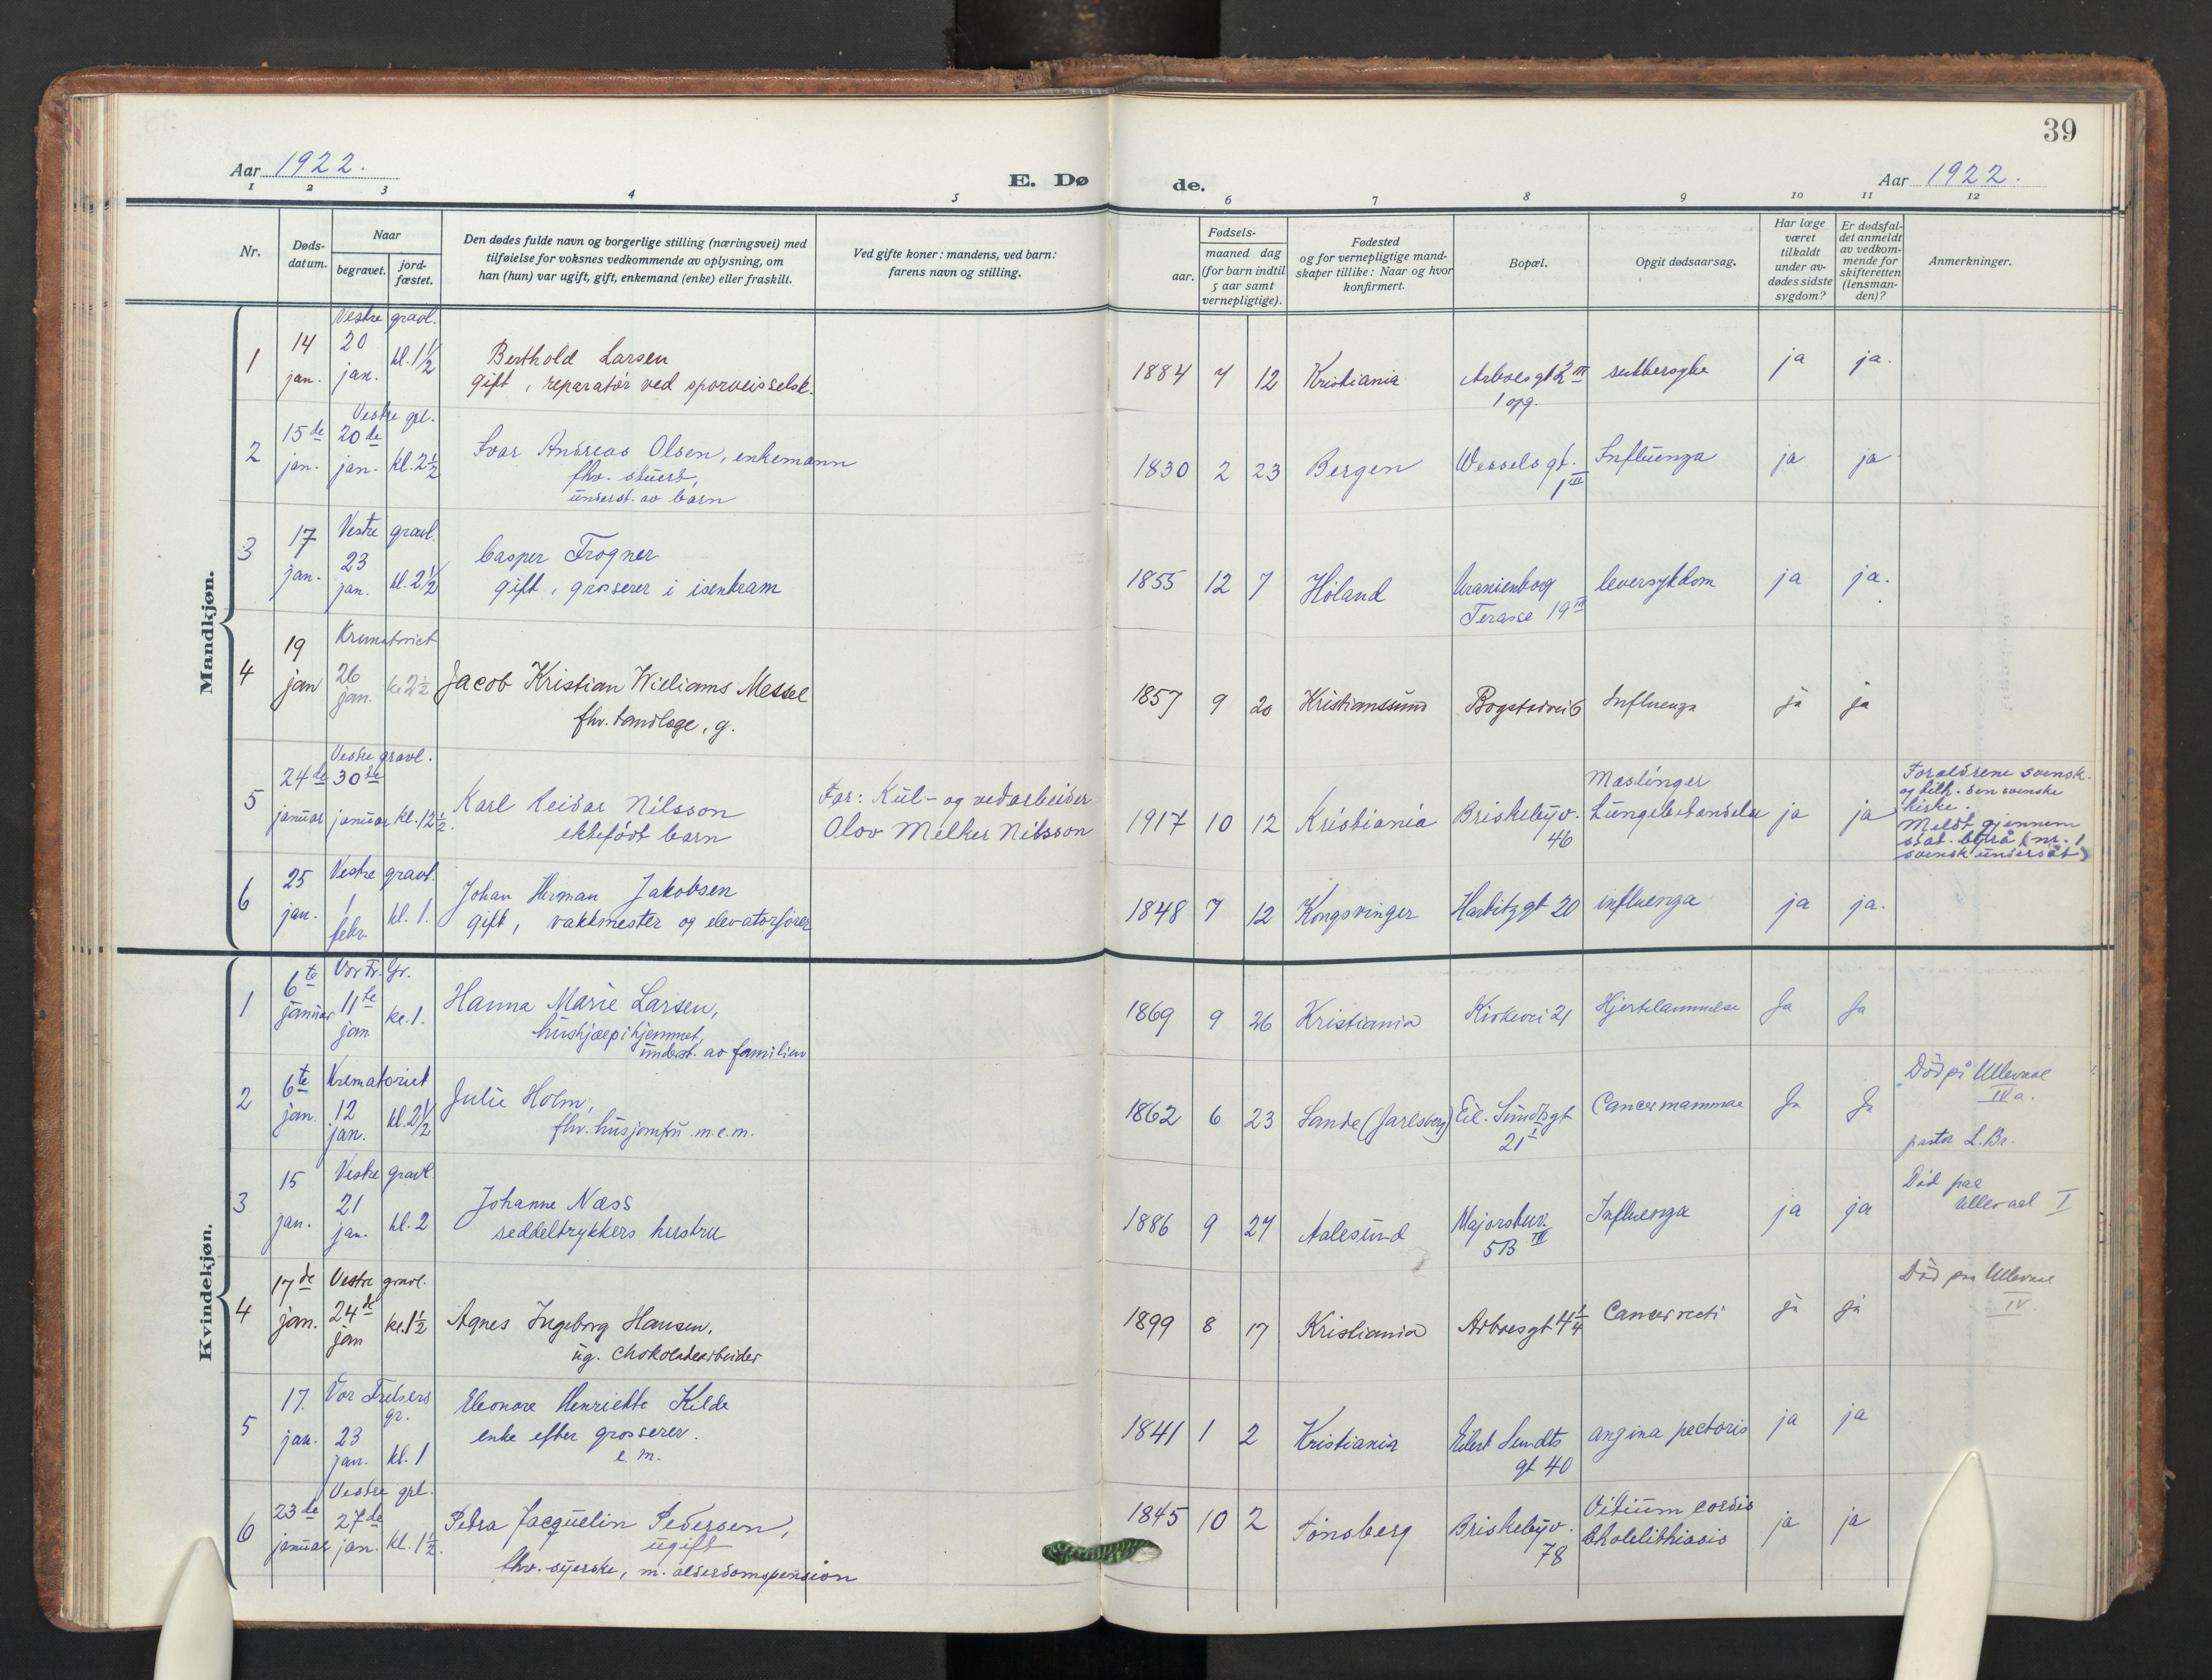 39
Aar 1922.
E. Døde.
Aar 1922.
1 2 3 4 5 6 7 8 9 10 11 12
Nr.
Døds-datum.
Naar
begravet.
jord-fæstet.
Den dødes fulde navn og borgerlige stilling (næringsvei) med
tilføielse for voksnes vedkommende av oplysning, om
han (hun) var ugift, gift, enkemand (enke) eller fraskilt.
Ved gifte koner: mandens, ved barn:
farens navn og stilling.
Fødsels-
aar.
maaned dag
(for barn indtil
5 aar samt
vernepligtige).
Fødested
og for vernepligtige mand-
skaper tillike: Naar og hvor
konfirmert.
Bopæl.
Opgit dødsaarsag.
Har læge
været
tilkaldt
under av-
dødes sidste
sygdom?
Er dødsfal-
det anmeldt
av vedkom-
mende for
skifteretten
(lensman-
den)?
Anmerkninger.
Mandkjøn.
Vestre gravl.
1 14 jan. 20 jan. kl. 1½ Berthold Larsen
gift, reparatør ved sporveisselsk.
1884 7 12 Kristiania Arboesgt 2 III
1 opg.
sukkersyke ja ja.
Vestre grl.
2 15de jan. 20de jan. kl. 2½ Ivar Andreas Olsen, enkemann
fhv. stuert,
underst. av barn
1830 2 23 Bergen Wesselsgt.
1 III
Influenza ja ja
Vestre gravl.
3 17 jan. 23 jan. kl. 2½ Casper Frogner
gift, grosserer i isenkram
1855 12 7 Høland Uranienborg
Terasse 19 III
leversykdom ja ja.
Krematoriet
4 19 jan 26 jan. kl 2½ Jacob Kristian Williams Messel
fhv. tandlæge, g.
1857 9 20 Kristianssund Bogstadvei 6 Influenza ja ja
Vestre gravl.
5 24de januar 30te januar kl. 12½. Karl Reidar Nilsson
ektefødt barn
Far: Kul- og vedarbeider
Olov Melker Nilsson
1917 10 12 Kristiania Briskebyv.
46
Maslinger
Lungebetændelse ja ja
Forældrene svensk.
og tilh. den svenske
kirke.
Meldt gjennem
stat. byrå (nr. 1
svensk undersåt)
Vestre gravl.
6 25 jan. 1 febr. kl. 1. Johan Herman Jakobsen
gift, vaktmester og elevatorfører
1848 7 12 Kongsvinger Harbitzgt 20 influenza ja ja.
Kvindekjøn.
Vor Fr. Gr.
1 6te januar 11te jan kl. 1. Hanna Marie Larsen,
hushjælp i hjemmet,
underst. av familien
1869 9 26 Kristiania Kirkevei 21 Hjertelammelse Ja Ja
Krematoriet
2 6te jan. 12 jan. kl. 2½ Julie Holm,
fhv. husjomfru m.e.m.
1862 6 23 Sande (Jarlsberg) Eil. Sundtsgt
21 I
Cancer mammae Ja Ja
Död på Ullevaal
IV a.
pastor L. Br.
Vestre gravl.
3 15 jan. 21 jan. kl. 2 Johanne Næss
seddeltrykkers hustru
1886 9 27 Aalesund Majorstuv.
5B IV
Influenza ja ja
Död paa
Ullevaal I
Vestre gravl.
4 17de jan. 24de jan kl. 1½ Agnes Ingeborg Hansen,
ug. chokoladearbeider
1899 8 17 Kristiania Arboesgt 4 Cancer recti ja ja
Død paa Ullevaal
IV.
Vor Frelsers
gr.
5 17. jan. 23 jan. kl. 1 Eleonore Henriette Kilde
enke efter grosserer.
e. m.
1841 1 2 Kristiania Eilert Sundts
gt 40
angina pectoris ja ja
Vestre grl.
6 23de januar 27de jan. kl. 1½. Petra Jacquelin Pedersen,
ugift
fhv. syerske, m. alderdomspension
1845 10 2 Tönsberg Briskebyv.
78
Vitium cordis
Cholelithiasis ja ja